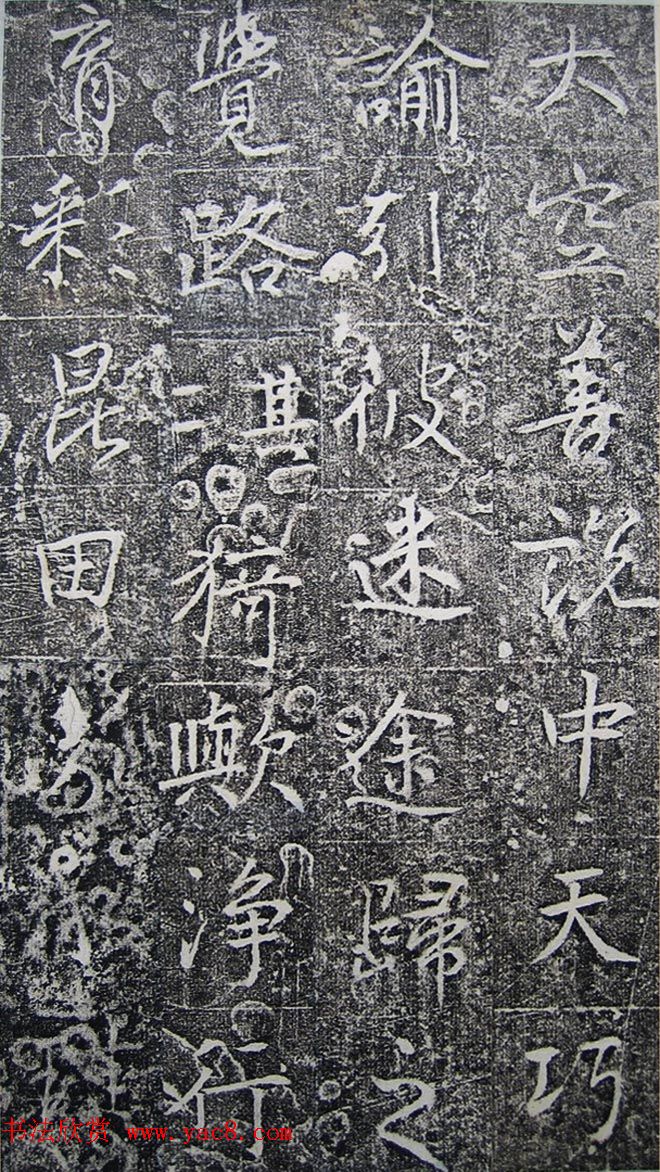 大空善説中天巧
諭引彼迷途歸之
覺路其二猗歟淨行
育彩昆田
书法欣赏 www.yac8.com